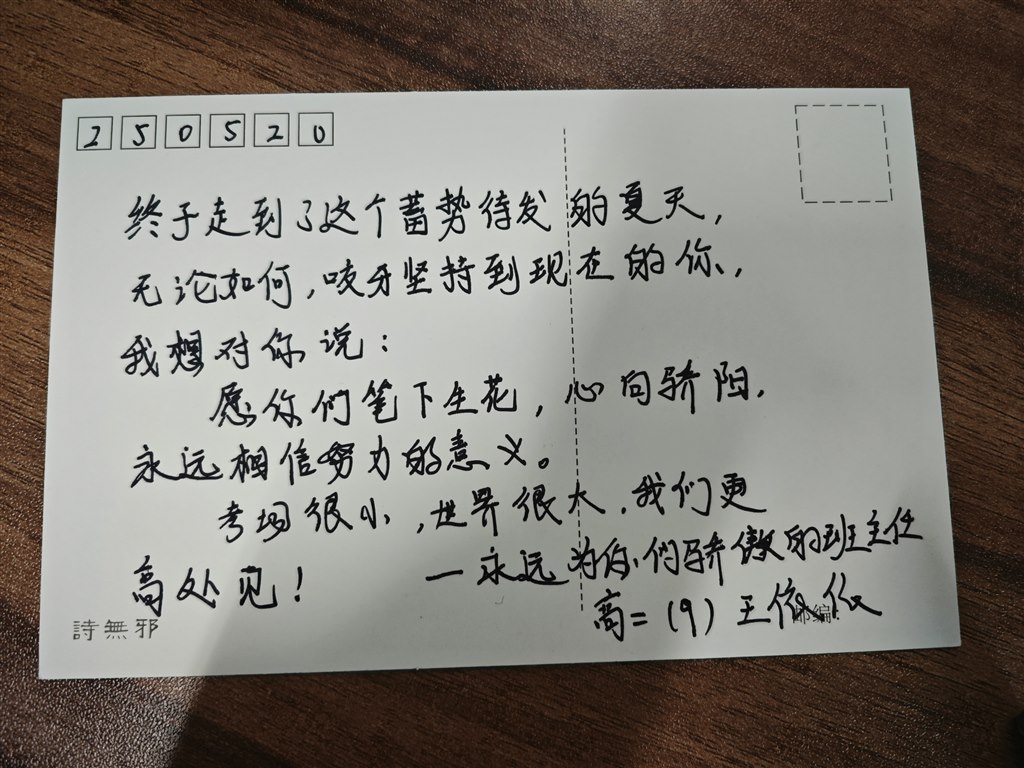 250520
终于走到了这个蓄势待发的夏天,
无论如何,咬牙坚持到现在的你,
我想对你说:
愿你们笔下生花,心向骄阳,
永远相信努力的意义。
考场很小,世界很大,我们更
高处见!
—永远为你们骄傲的班主任
高二(9)王依依
詩無邪
邮编: